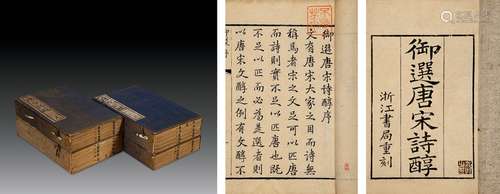 御選唐宋詩醇序
文有唐宋大家之目而詩無
稱焉者宋之文足可以匹唐
而詩則實不足以匹唐也既
不足以匹而必為是選者則
以唐宋文醇之例有文醇不
御選唐宋詩醇
浙江書局重刻